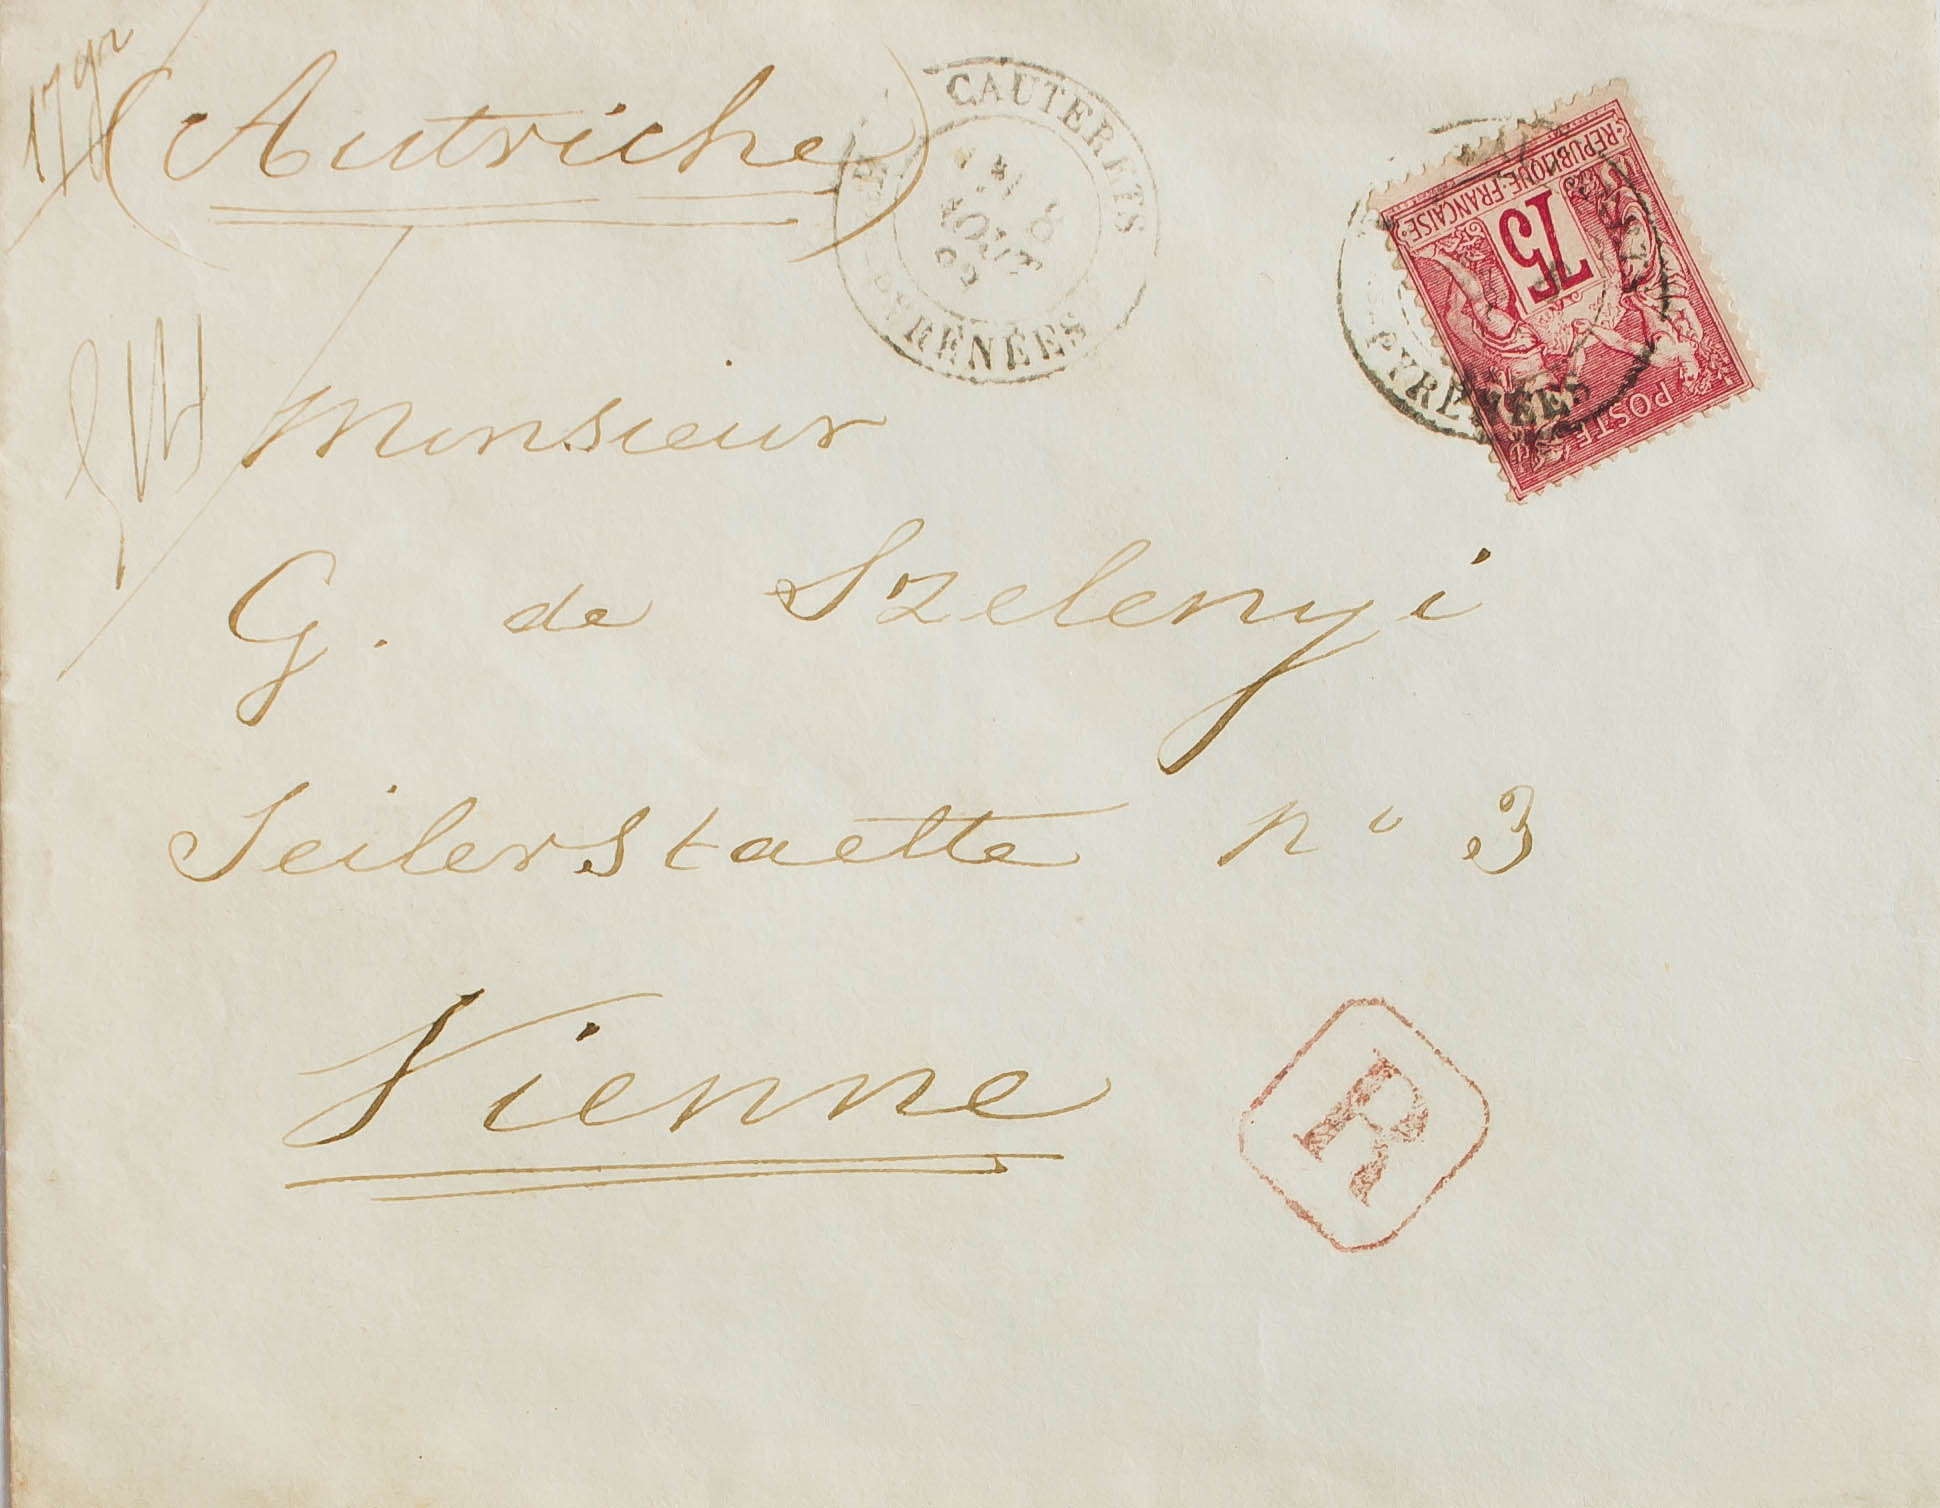 17 gr
(Autriche)
CAUTERETS
AOUT
PYRENÉES
RÉPUBLIQUE·FRANÇAISE·
75
POSTE
PYRENÉES
Monsieur
G. de Szelenyi
Seilerstaette no 3
Vienne
R